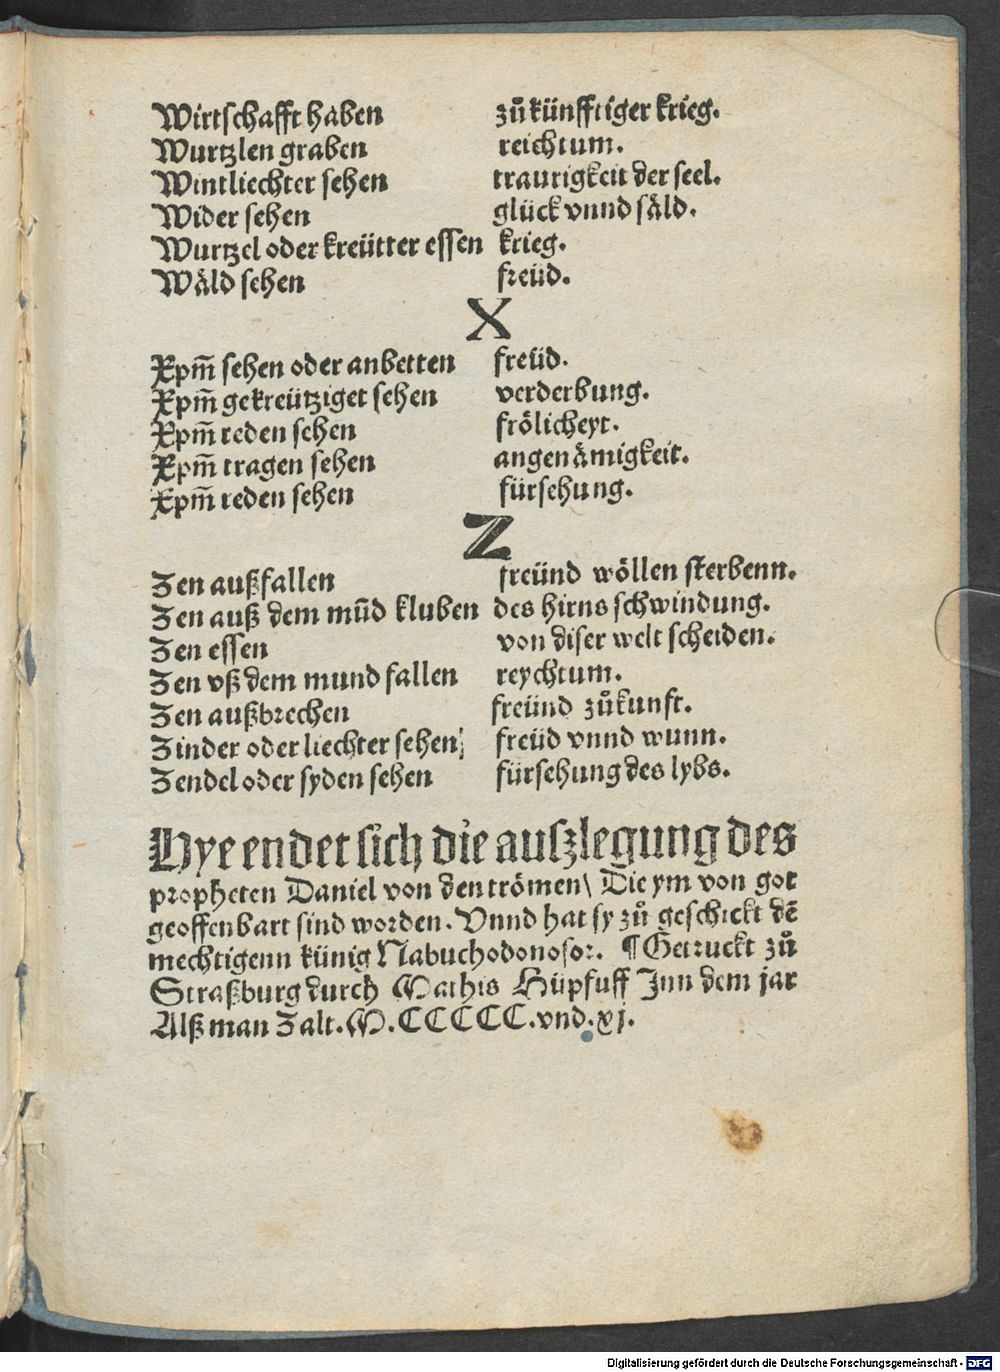 Wirtschafft haben zů künfftiger krieg.
Wurtzlen graben reichtum.
Wintliechter sehen traurigkeit der seel.
Wider sehen glück vnnd säld.
Wurtzel oder kreütter essen krieg.
Wäld sehen freüd.
X
Xpm̄ sehen oder anbetten freüd.
Xpm̄ gekreütziget sehen verderbung.
Xpm̄ reden sehen frölicheyt.
Xpm̄ tragen sehen angenämigkeit.
Xpm̄ reden sehen fürsehung.
Z
Zen außfallen freünd wöllen sterbenn.
Zen auß dem mūd kluben des hirns schwindung.
Zen essen von diser welt scheiden.
Zen vß dem mund fallen reychtum.
Zen außbrechen freünd zůkunft.
Zinder oder liechter sehen freüd vnnd wunn.
Zendel oder syden sehen fürsehung des lybs.
Hye endet sich die auszlegung des
propheten Daniel von den trömen\ Die ym von got
geoffenbart sind worden. Vnnd hat sy zů geschickt dē
mechtigenn künig Nabuchodonosor. ¶ Getruckt zů
Straßburg durch Mathis Hüpfuff Inn dem jar
Alß man Zalt. M. CCCCC. vnd. xj.
Digitalisierung gefördert durch die Deutsche Forschungsgemeinschaft - DFG